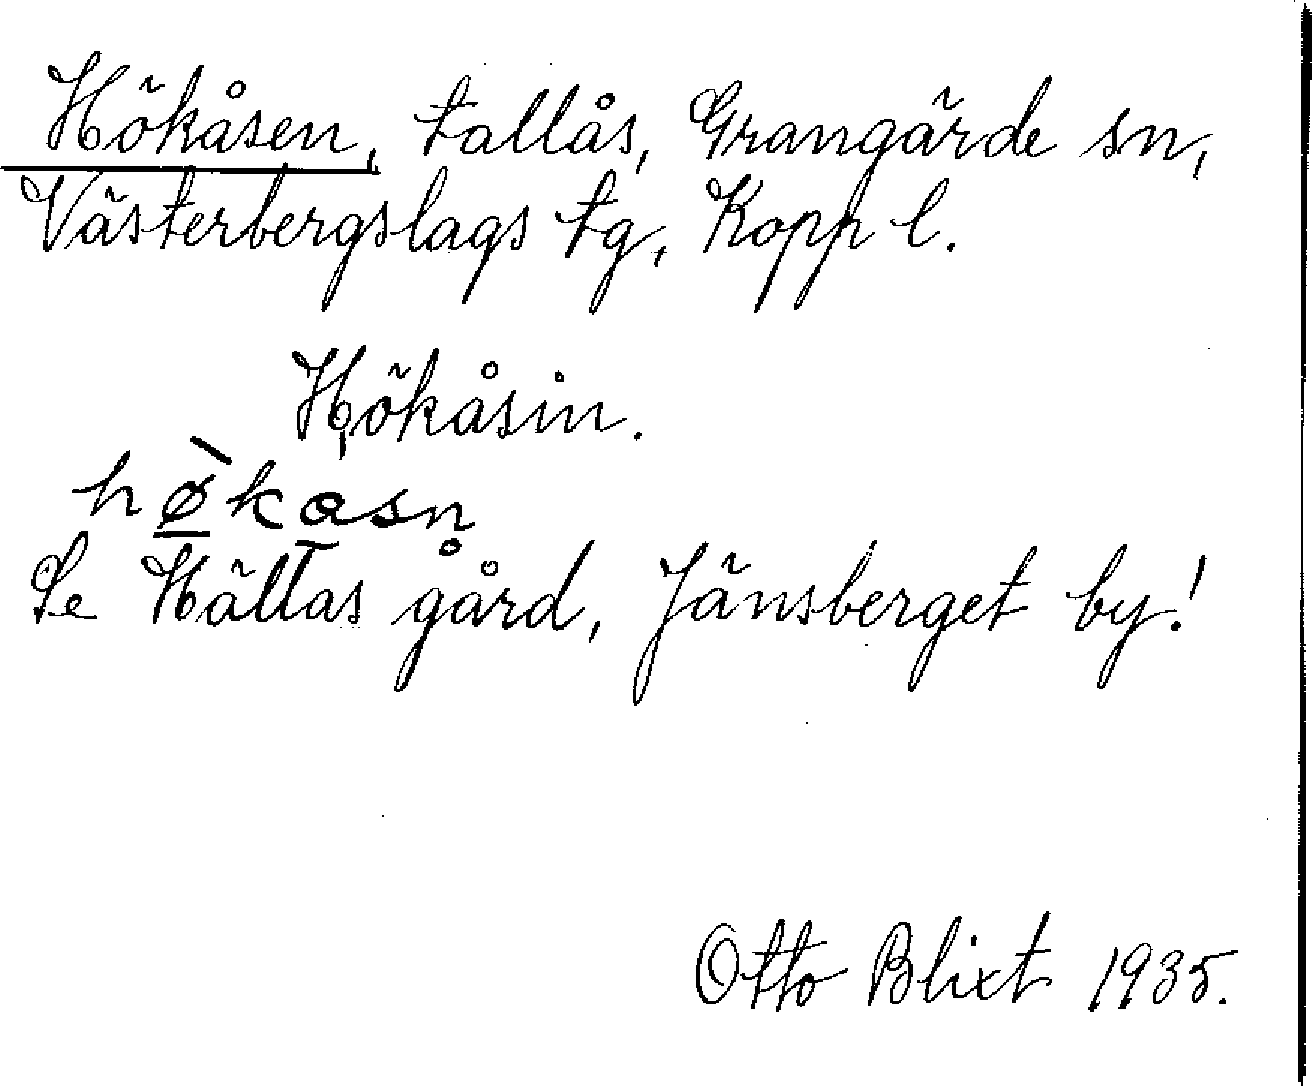 Hökåsen, tallås, Grangärde sn,
Västerbergslags tg, Kopp l.
Hökåsin.
hø̱̀ka̱sn̥
Se Hållas gård, Jänsberget by!
Otto Blixt 1935.